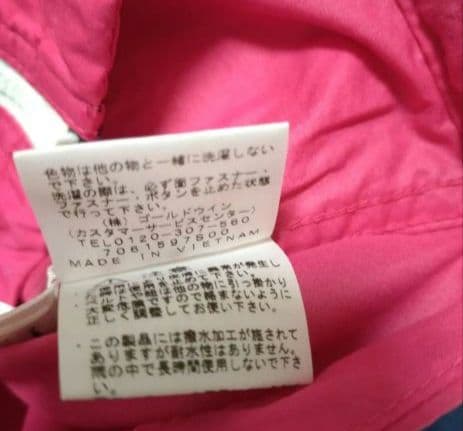 色物は他の物と一緒に洗濯しない
で下さい。
洗濯の際は、必ず面ファスナー、
ファスナー、ボタンを止めた状態
で行って下さい。
(株)ゴールドウイン
(カスタマーサービスセンター)
TEL0120-307-560
7061597500
MADE IN VIETNAM
が発生し
他の物に引っ掛かり
ますので絡まないように
正しく調整してお使い下さい。
この製品には撥水加工が施されて
ありますが耐水性はありません。
雨の中で長時間使用しないで下さ
い。